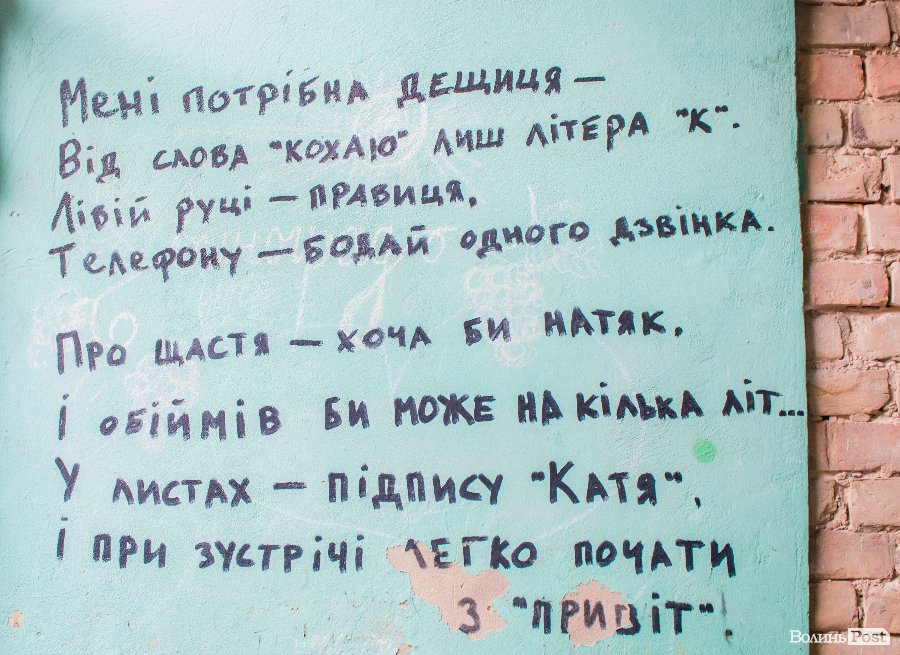 Мені потрібна дещиця –
Від слова "кохаю" лиш літера "К".
Лівій руці – правиця,
Телефону – бодай одного дзвінка.
Про щастя – хоча би натяк,
І обіймів би може на кілька літ...
У листах – підпису "Катя",
І при зустрічі легко почати
з "привіт"
Волинь Post